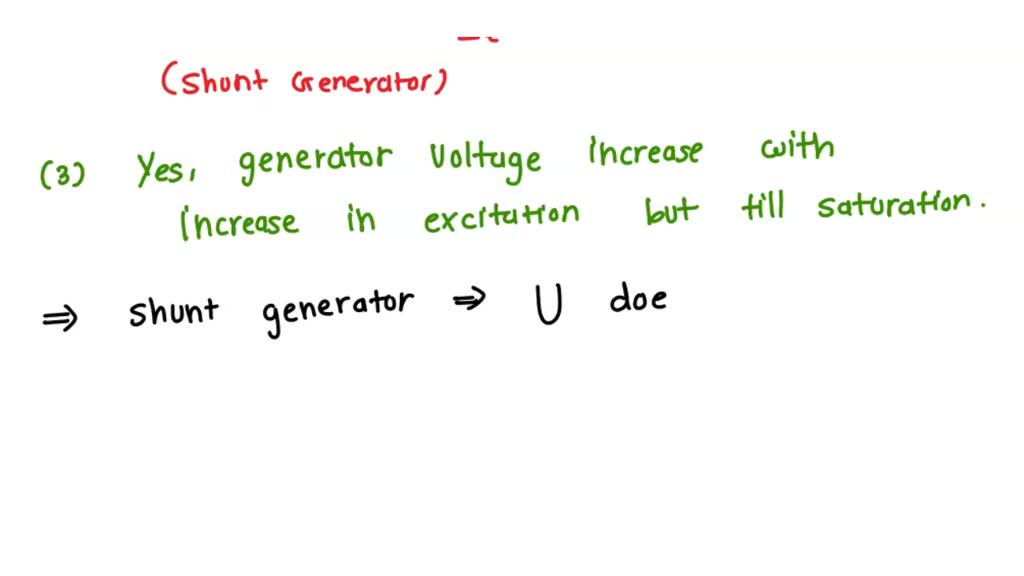 (Shunt Generator)
(3) Yes, generator Voltage increase with
increase in excitation but till saturation.
⇒ shunt generator ⇒ U doe